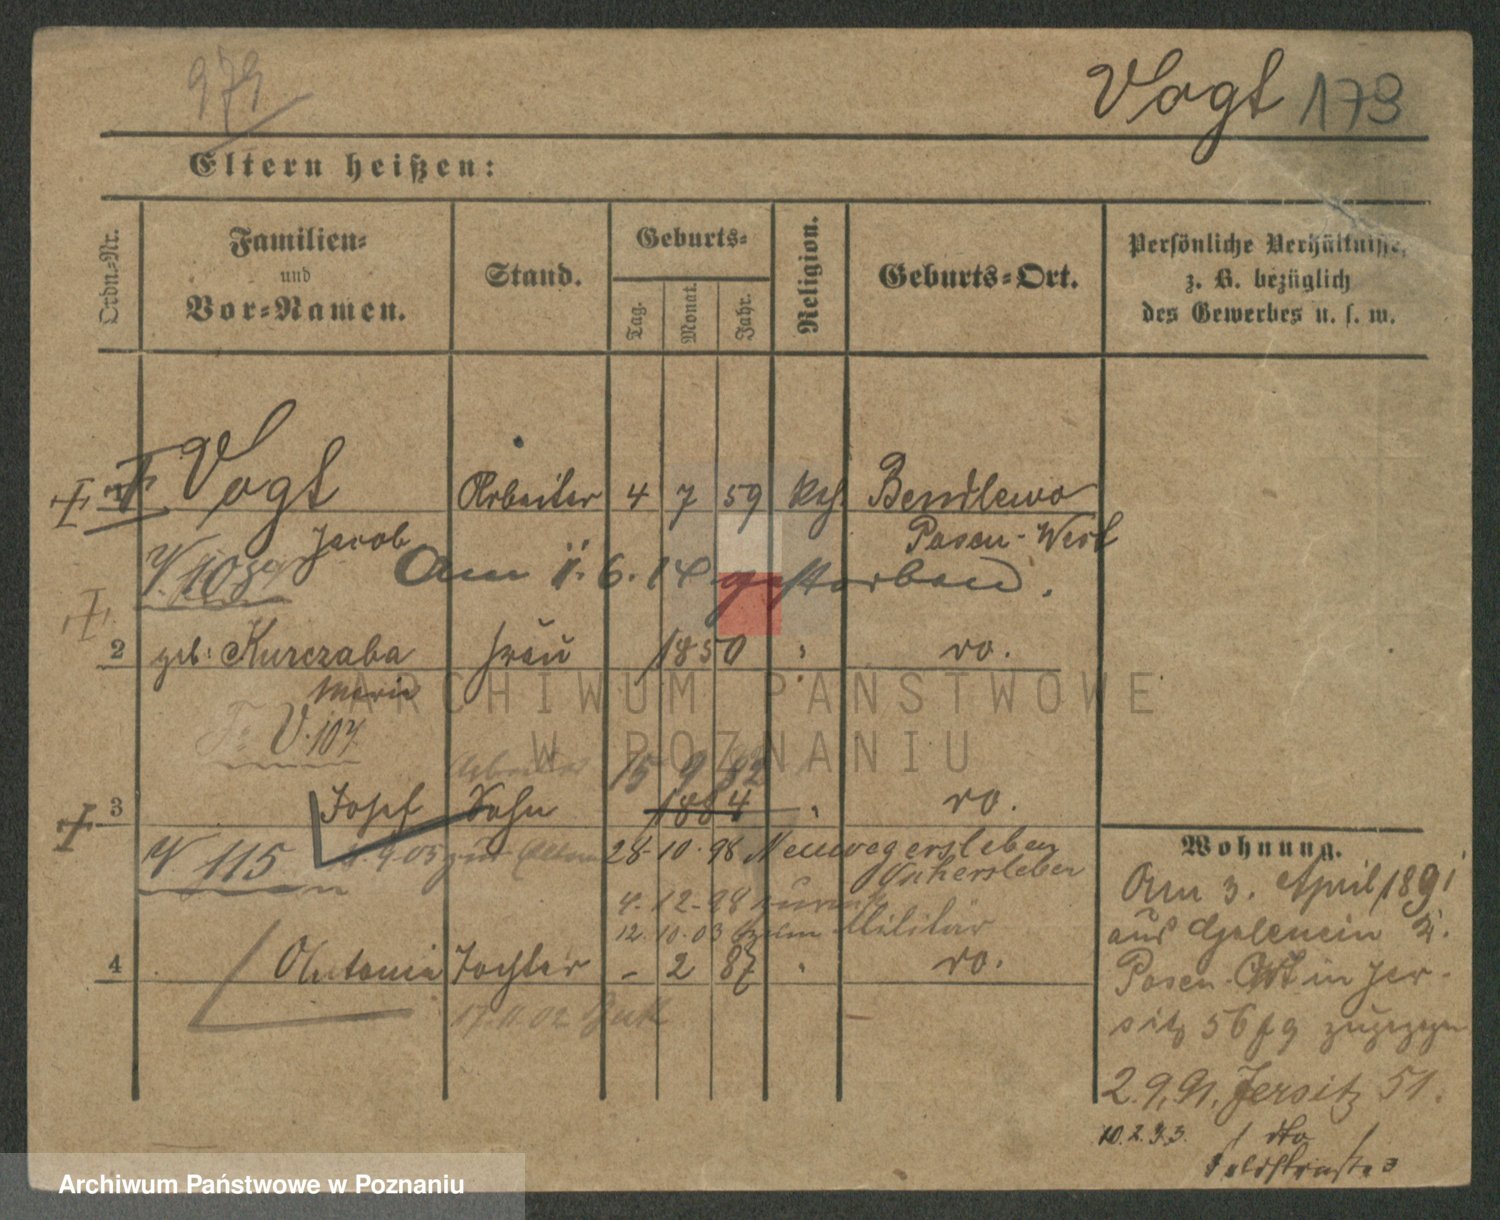 979
Vogt 173
Eltern heißen:
Ordn=Nr.
Familien=
und
Vor=Namen.
Stand.
Geburts=
Tag.
Monat.
Jahr.
Religion.
Geburts=Ort.
Persönliche Verhältnisse,
z. B. bezüglich
des Gewerbes u. s. w.
1 Vogt Arbeiter 4 7 59 kth. Bendlewo
Jacob Posen-West
Am 1.6.14 gestorben.
2 geb: Kurczaba Frau 1850 " do.
Marie
V. 107
Arbeiter 15 9 82
3 Josef Sohn 1884 " do.
V 115
28.10.98 Neuwegersleben
Oschersleben
4.12.98 zurück
12.10.03 zum Militär
4 Antonia Tochter - 2 87 " do.
17.11.02
Wohnung.
Am 3. April 1891
aus Golencin Kr.
Posen Ost in Jer-
sitz 56 zugezogen
2.9.91. Jersitz 51.
10.2.93. dto
Feldstraße 3
ARCHIWUM PAŃSTWOWE
W POZNANIU
Archiwum Państwowe w Poznaniu